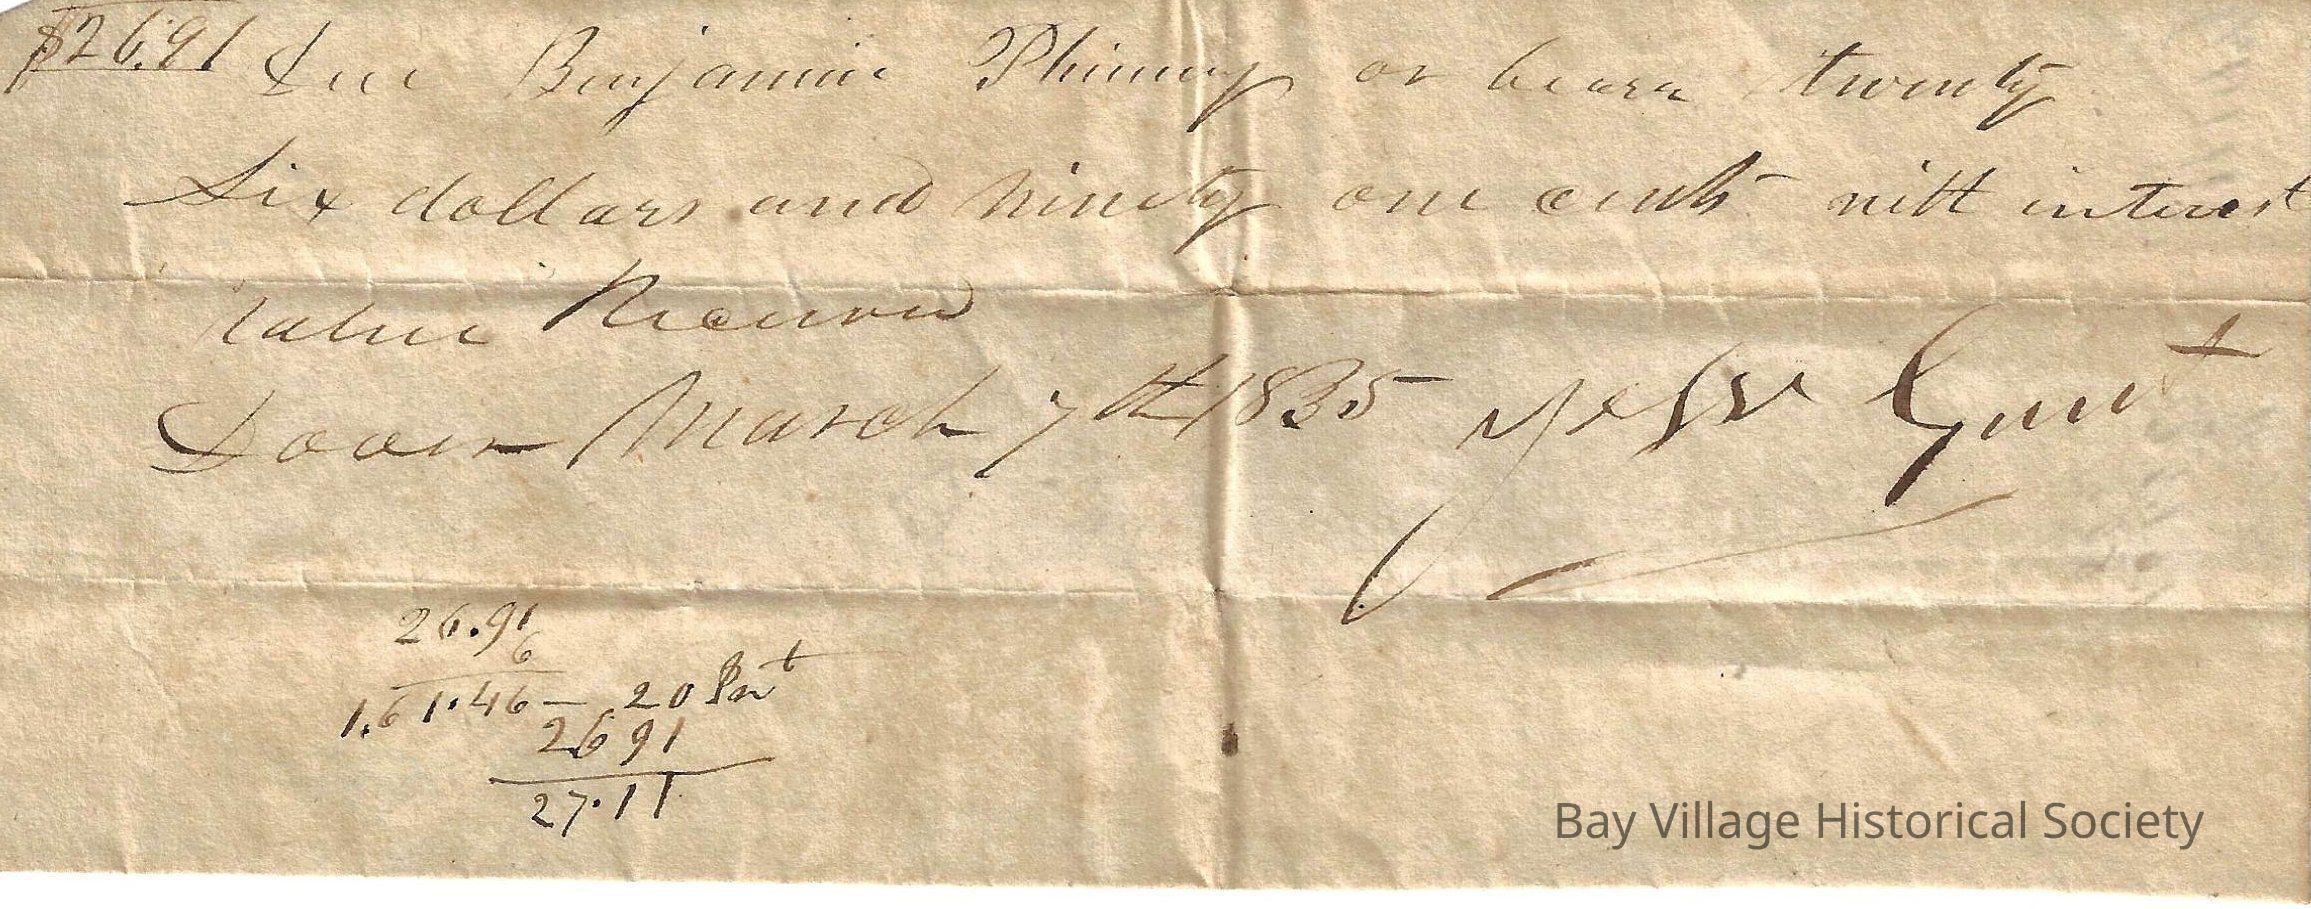 $26.91 Due Benjamin Phinney or bearer twenty
Six dollars and ninety one cents with interest
Value Received
Dover March 7th 1835 Jesse Grant
26.91
6
1.61.46 — 20 Int
2691
27.11
Bay Village Historical Society